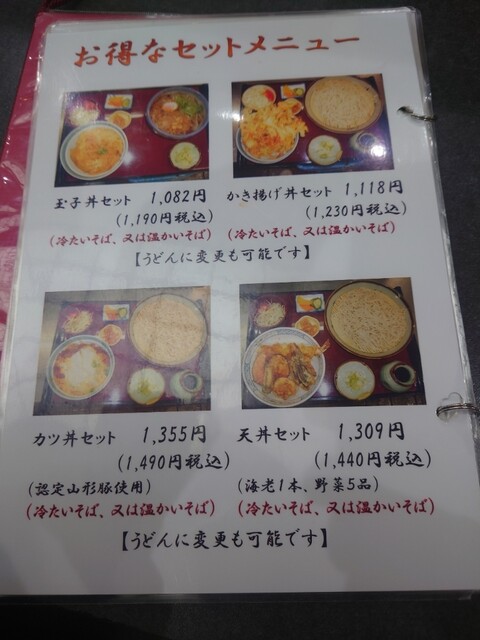 お得なセットメニュー
玉子丼セット 1,082円
(1,190円税込)
(冷たいそば、又は温かいそば)
かき揚げ丼セット 1,118円
(1,230円税込)
(冷たいそば、又は温かいそば)
【うどんに変更も可能です】
カツ丼セット 1,355円
(1,490円税込)
(認定山形豚使用)
(冷たいそば、又は温かいそば)
天丼セット 1,309円
(1,440円税込)
(海老1本、野菜5品)
(冷たいそば、又は温かいそば)
【うどんに変更も可能です】